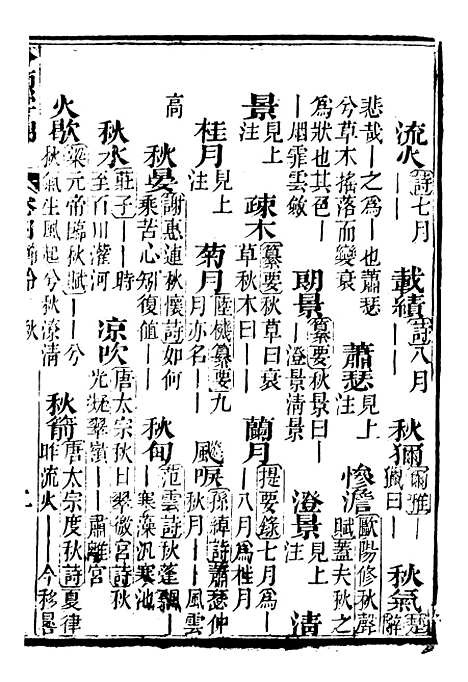 流火詩七月——載績詩八月——秋獮爾雅獵曰——秋氣楚辭
悲哉—之為—也蕭瑟兮草木搖落而變衰蕭瑟見上注慘澹歐陽修秋聲賦蓋夫秋之
為狀也其色——烟霏雲斂朗景纂要秋景曰——澄景清景澄景見上注清
景見上注疎木纂要秋草曰衰草秋木曰——蘭月提要錄七月為——八月為桂月
桂月見上注菊月陸機纂要九月亦名——飂唳孫綽詩蕭瑟仲秋月——風雲
高秋晏謝惠連秋懷詩如何乘苦心矧復值——秋旬范雲詩秋蓬飄——寒藻汎寒池
秋水莊子——時至百川灌河凉吹唐太宗秋日翠微宮詩秋光凝翠嶺——肅離宮
火歇梁元帝臨秋賦——兮秋氣生風起兮秋潦清秋箭唐太宗度秋詩夏律昨流火——今移晷